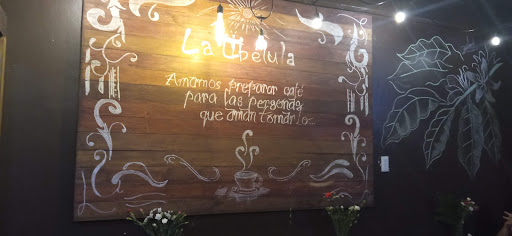 La Libelula
Amamos preparar café
para las personas
que aman tomarlo.